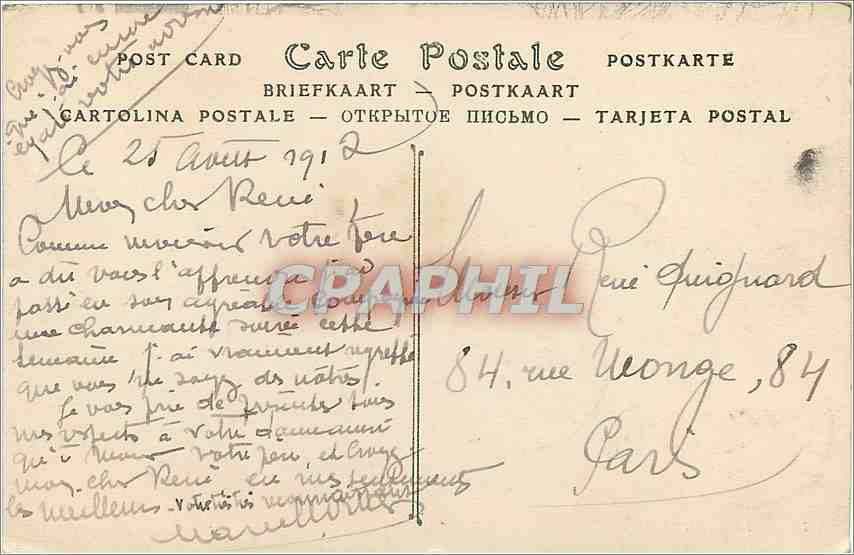 POST CARD Carte Postale POSTKARTE
BRIEFKAART — POSTKAART
CARTOLINA POSTALE — ОТКРЫТОЕ ПИСЬМО — TARJETA POSTAL
Croyez-vous
que j'ai
également votre
Ce 25 Août 1912
Mon cher René,
Comme monsieur votre père
a dit vous l'apprendre j'ai
passé en son agréable compagnie
une charmante soirée cette
semaine j'ai vraiment regretté
que vous ne soyez des nôtres.
Je vous prie de présenter tous
mes respects à votre
qu'à votre père et croyez
mon cher René en mes sentiments
les meilleurs.
CPAPHIL
Monsieur René Guignard
84, rue Monge, 84
Paris